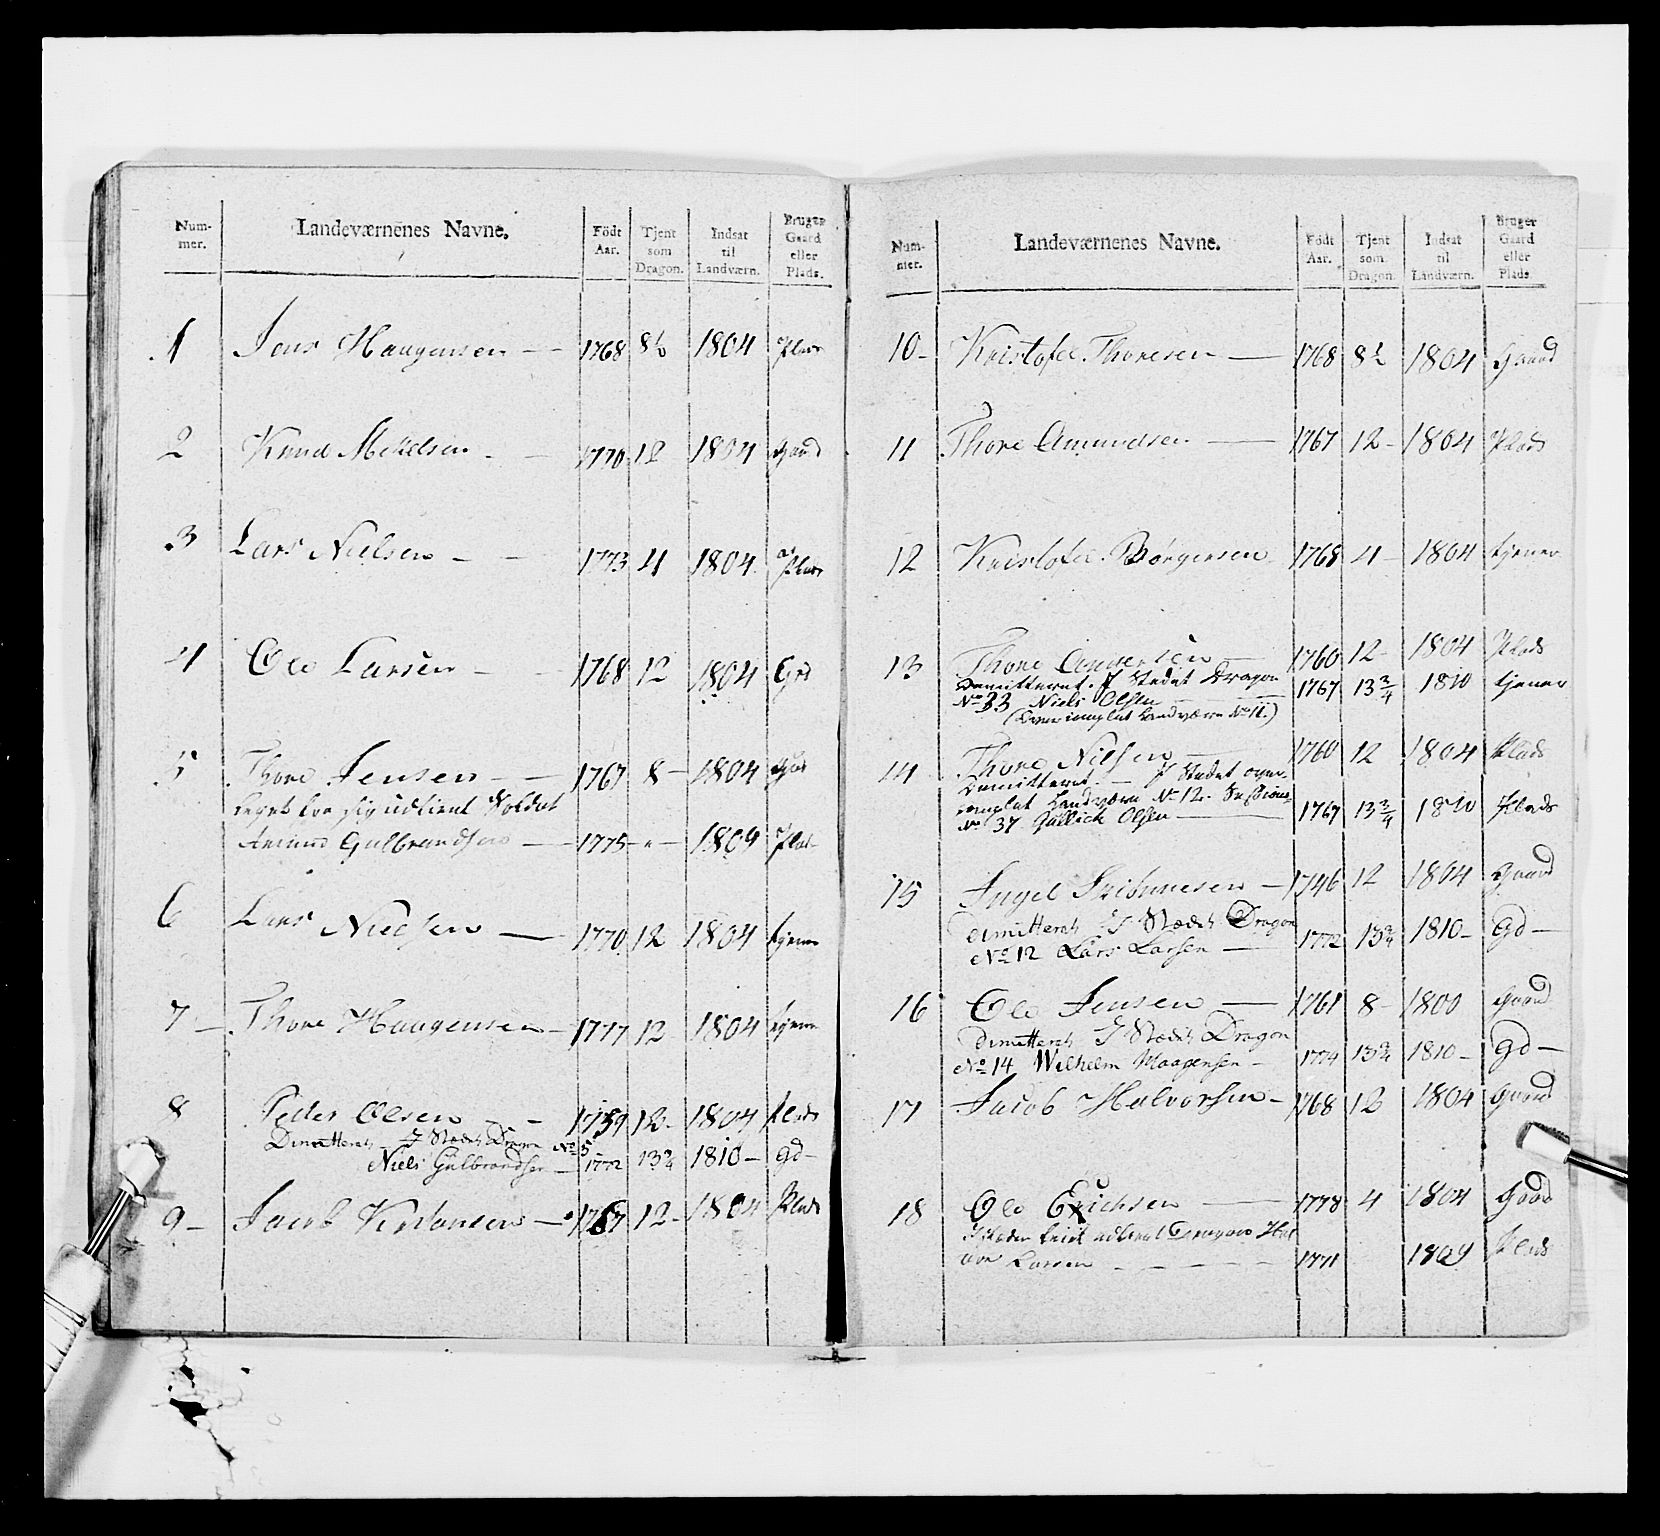 Num- Landeværnenes Navne. Födt Tjent Indsat Bruger
mer. Aar. som til Gaard
Dragon. Landværn. eller
Plads.
1 Jens Haagensen — 1768 8½ 1804 Plads
2 Knud Mikelsen — 1770 12 1804 Gaard
3 Lars Nielsen — 1773 4 1804 Plads
4 Ole Larsen — 1768 12 1804 Grd
5 Thore Jensen — 1767 8 — 1804
for sig udtient Soldat
Amund Gulbrandsen — 1775 — " — 1809 Plads
6 Lars Nielsen — 1770 12 1804 tjener
7 — Thore Haagensen — 1777 12 1804 tjener
8 Peder Olsen — 1759 12 — 1804 Plads
Dimitteret — I Stedet Dragon No 5
Niels Gulbrandsen — 1772 13¾ 1810 — gd —
9 — Jacob — 1767 12 — 1804 Plads
Num- Landeværnenes Navne. Födt Tjent Indsat Bruger
mer. Aar. som til Gaard
Dragon. Landværn. eller
Plads.
10 — Kristofer Thoresen — 1768 8½ 1804 Gaard
11 Thore Amundsen — 1767 12 — 1804 Plads
12 Kristofer Børgersen 1768 4 — 1804 tjener
13 Thore Andersen — 1760 12 — 1804 Plads
Demitteret. I Stedet Dragon 1767 13¾ 1810 tjener
No 33 Niels Olsen —
( Landværn No 11.)
14 Thore Nielsen — 1760 12 1804 Plads
Demitteret. — I Stedet over-
complet Landværn No 12.
No 37 Gullick Olsen — 1767 13¾ 1810 Plads
15 Ingel — 1746 12 1804 Gaard
dimitteret I Stædet Dragon
No 12 Lars Larsen — 1772 13¾ 1810 — Gd —
16 Ole Jensen — 1761 8 — 1800 Gaard
dimitteret I Stædet Dragon
No 14 Wilhelm Maagensen — 1774 13¾ 1810 — Gd —
17 Jacob Halvorsen — 1768 12 1804 Gaard
18 Ole Erichsen — 1778 4 1804 Gaard
Larsen — 1771 1809 Plads